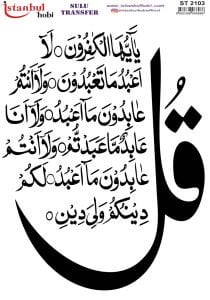 istanbul hobi
SULU TRANSFER
ST 2103
قُلْ
يَٓا اَيُّهَا الْكَافِرُونَۙ لَٓا
اَعْبُدُ مَا تَعْبُدُونَۙ وَلَٓا اَنْتُمْ
عَابِدُونَ مَٓا اَعْبُدُۚ وَلَٓا اَنَا۬
عَابِدٌ مَا عَبَدْتُمْۙ وَلَٓا اَنْتُمْ
عَابِدُونَ مَٓا اَعْبُدُۜ لَكُمْ
دِينُكُمْ وَلِيَ دِينِ